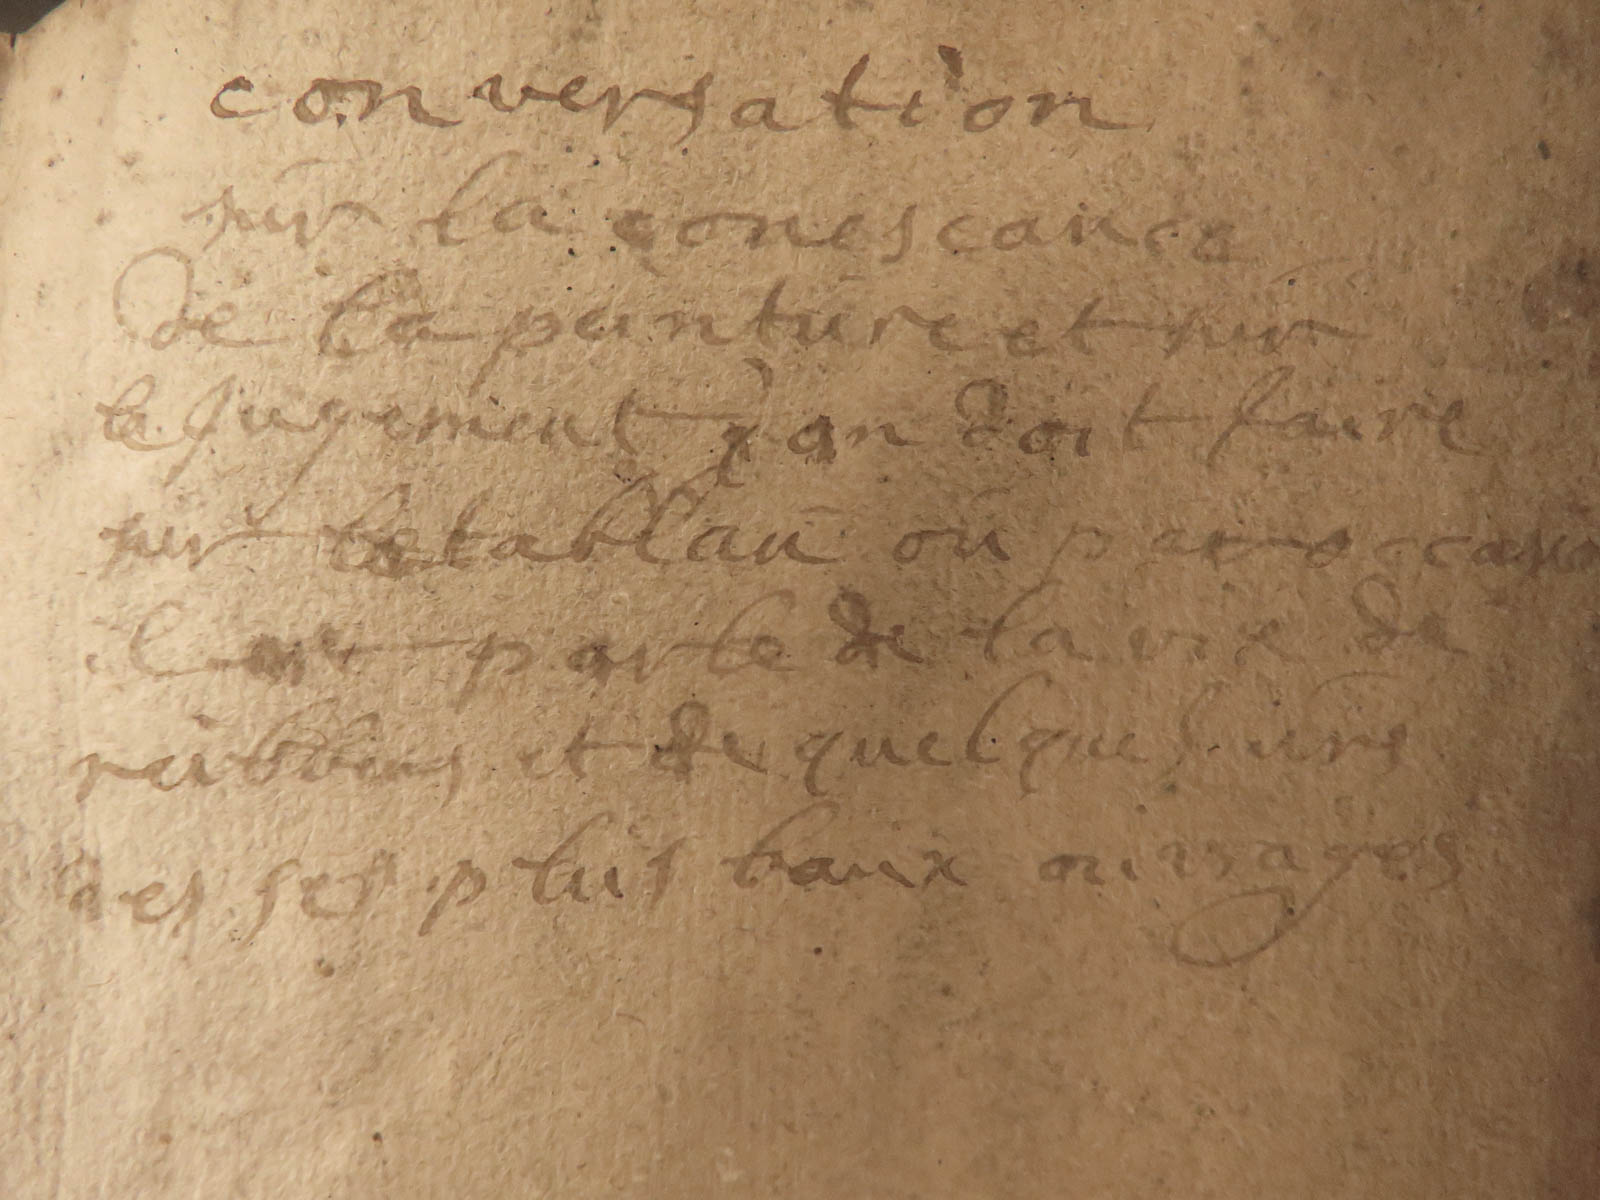 conversation
sur la conescance
de la peinture et sur
le jugement qon doit faire
sur le tablau ou par occasio
lon parle de la vie de
rubbens et de quelques uns
des ses plus baux ouvrages